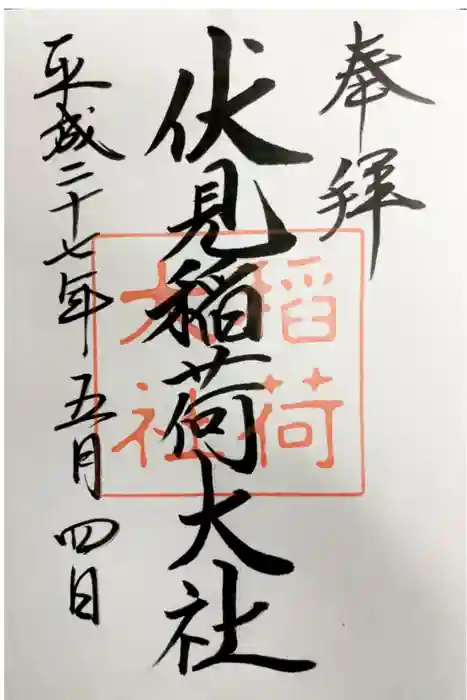 奉拝
伏見稲荷大社
稲荷
大社
平成二十七年五月四日